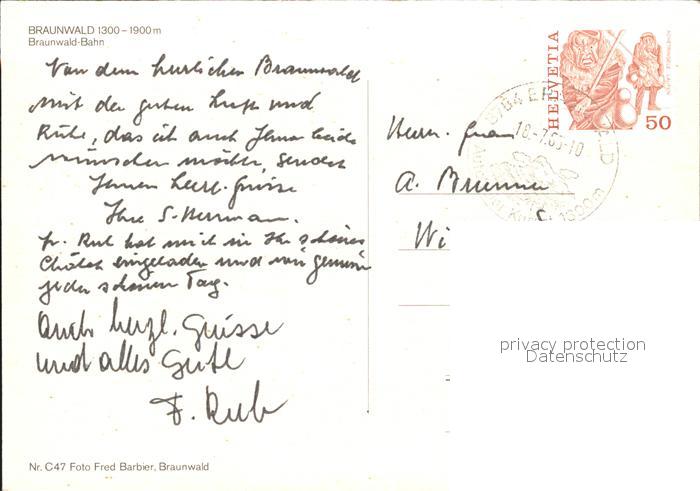 BRAUNWALD 1300–1900m
Braunwald-Bahn
Von dem herrlichen Braunwald
mit der guten Luft und
Ruhe, das ich auch Ihnen beide
wünschen möchte, sendet
Ihnen herzl. Grüsse
Ihre S. Herrmann.
Fr. Rub hat mich in Ihr schönes
Châlet eingeladen und wir geniessen
jeden schönen Tag.
auch herzl. Grüsse
und alles Gute
F. Rub
Nr. C47 Foto Fred Barbier, Braunwald
HELVETIA
50
8784
1900m
Herr. Frau
A. Brunner
Wi
privacy protection
Datenschutz